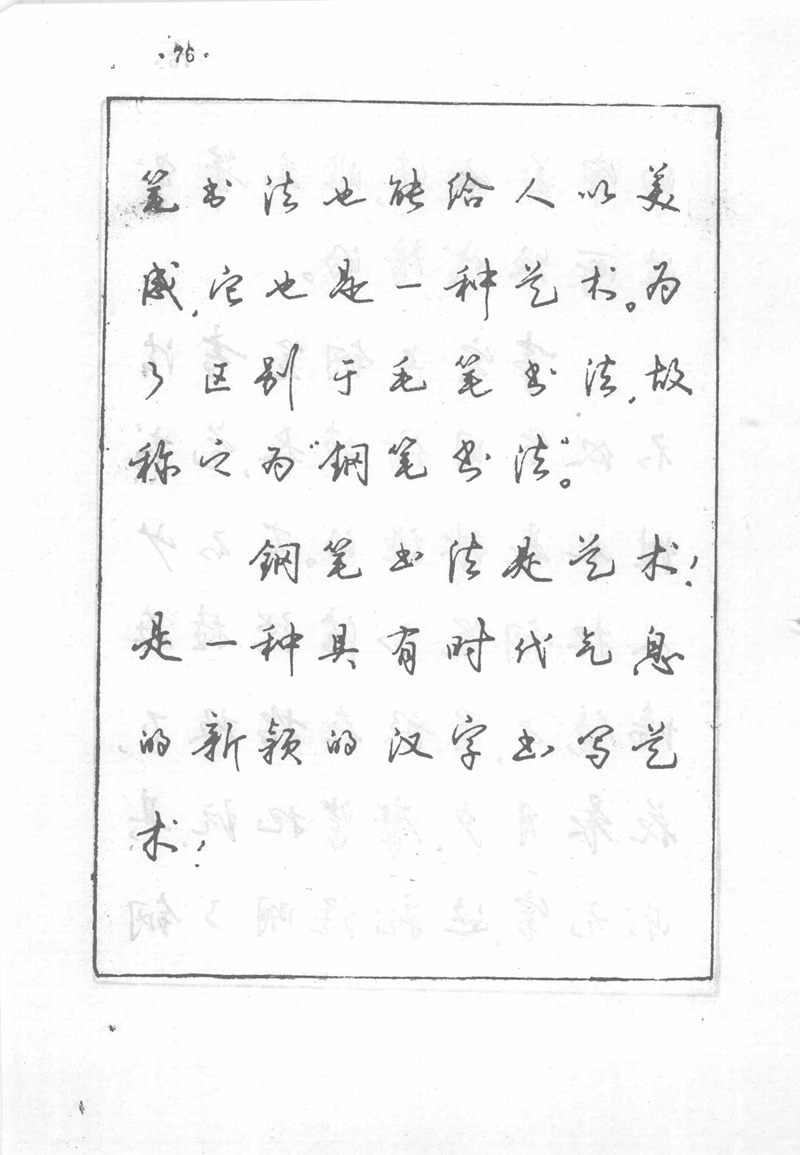 ·76·
笔书法也能给人以美
感,它也是一种艺术。为
了区别于毛笔书法,故
称它为“钢笔书法”。
钢笔书法是艺术!
是一种具有时代气息
的新颖的汉字书写艺
术!